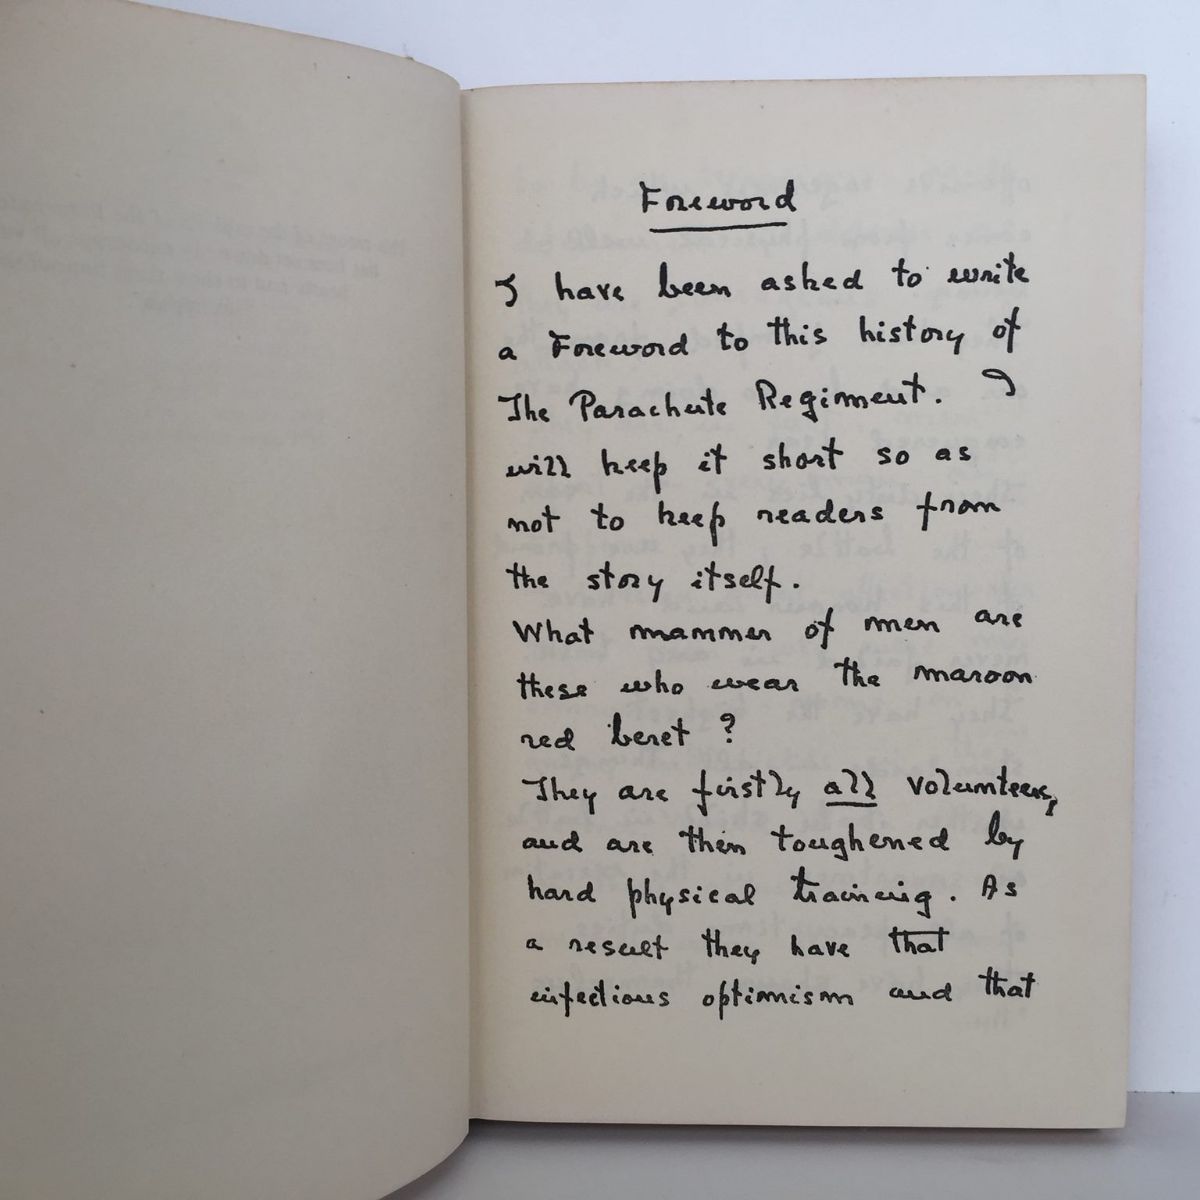 Foreword
I have been asked to write
a Foreword to this history of
The Parachute Regiment. I
will keep it short so as
not to keep readers from
the story itself.
What manner of men are
these who wear the maroon
red beret ?
They are firstly all volunteers,
and are then toughened by
hard physical training. As
a result they have that
infectious optimism and that